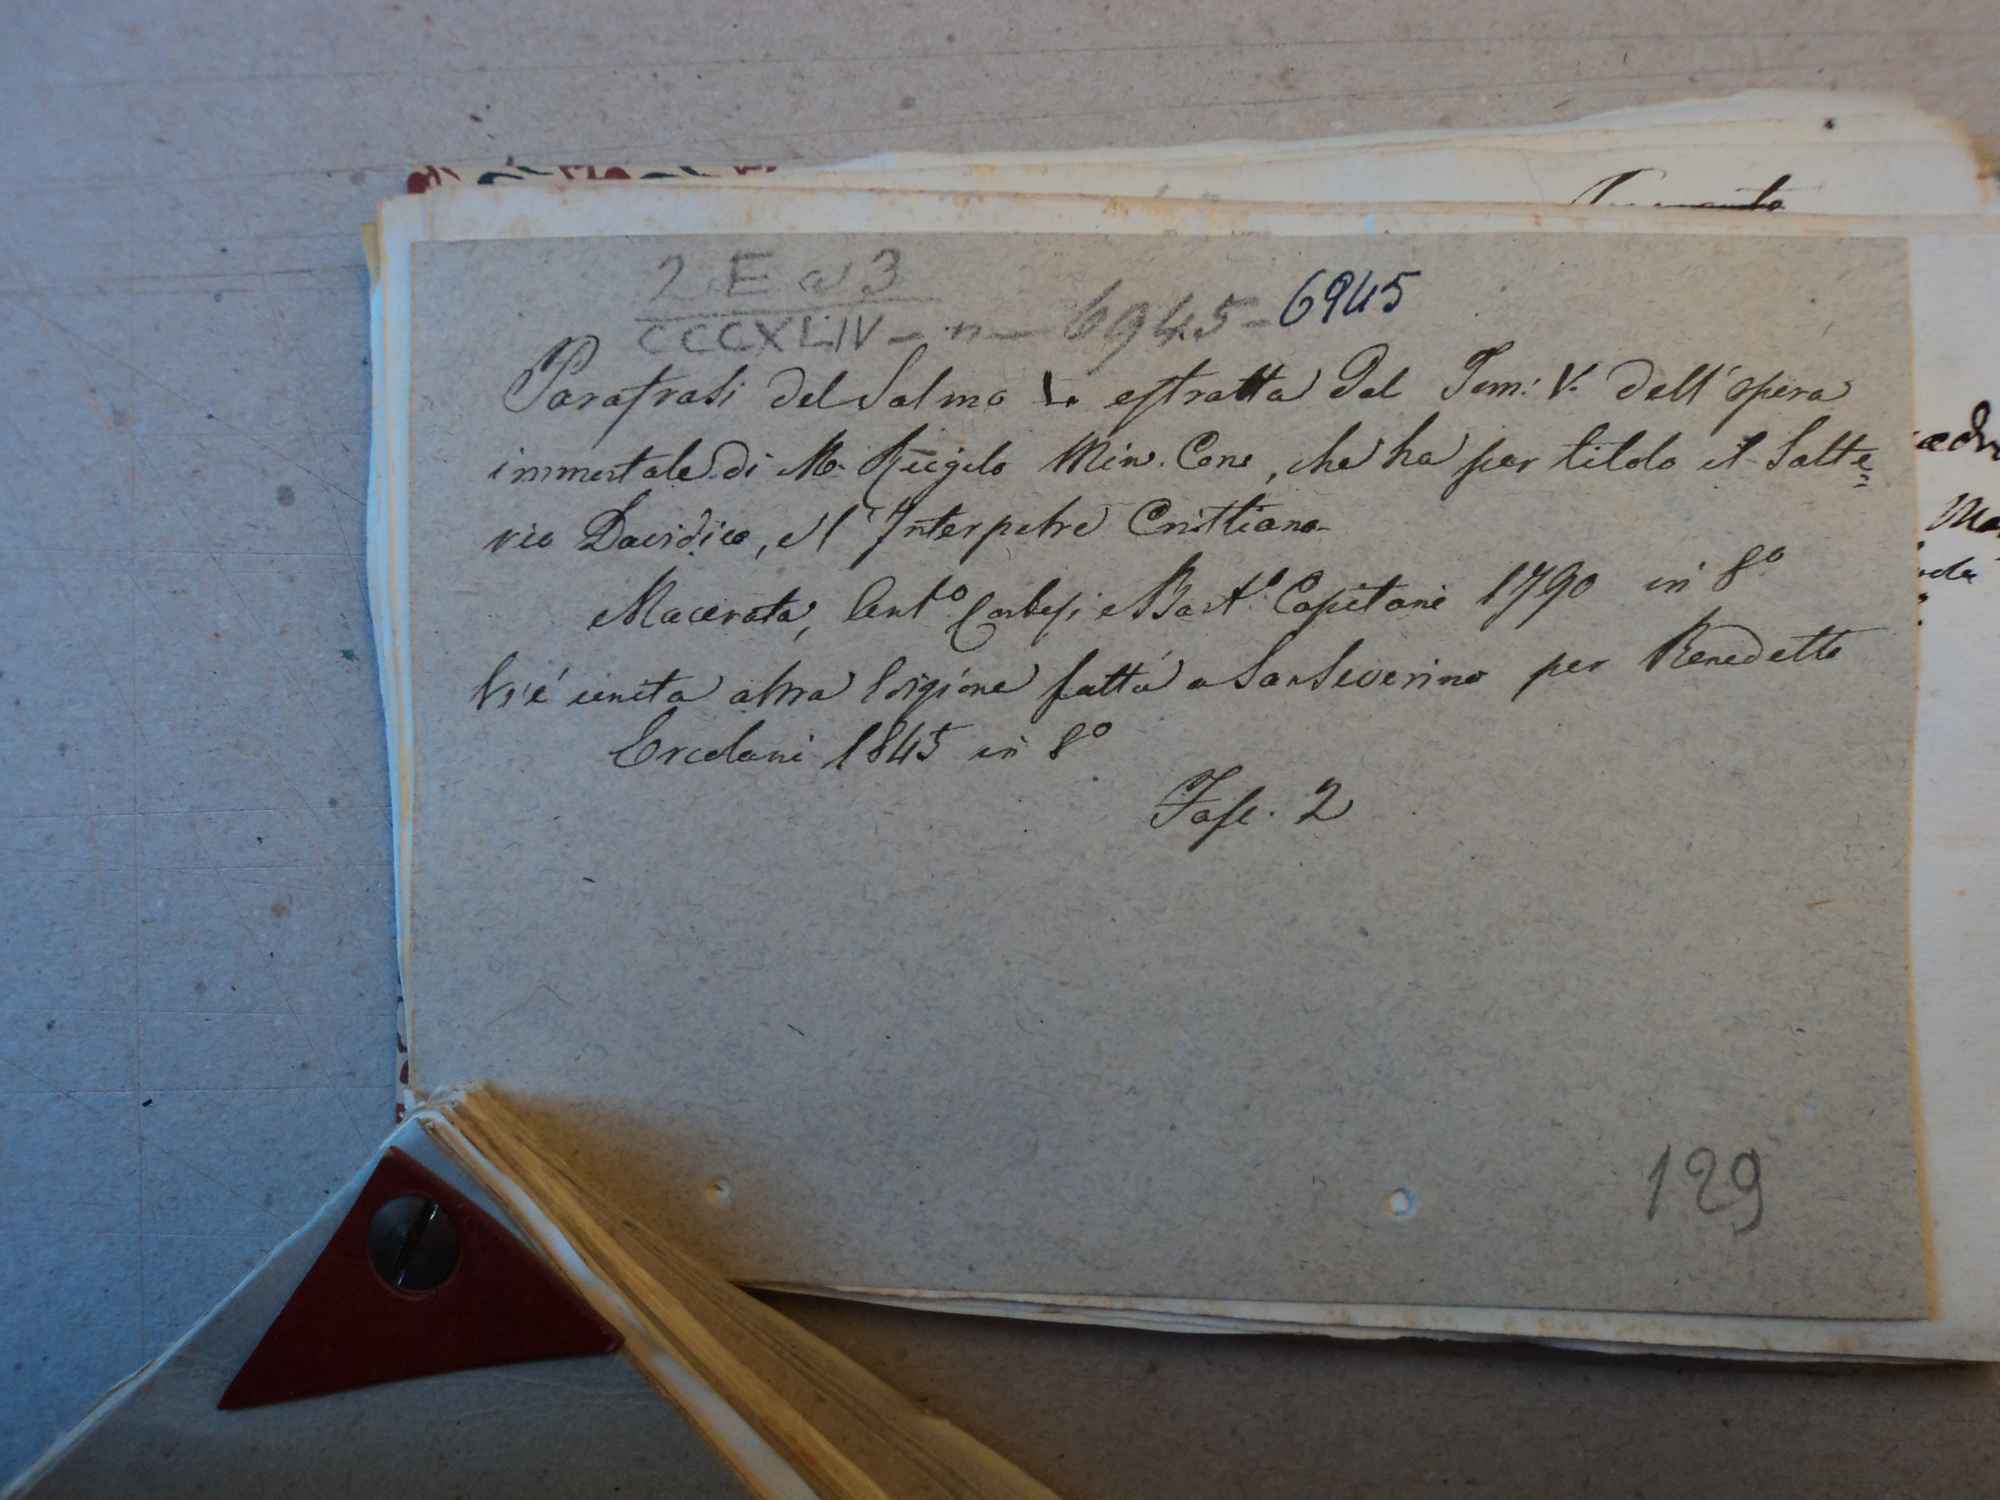 2 E a 3
CCCXLIV - n - 6945 - 6945
Parafrasi del Salmo L. estratta dal Tom: V. dell' opera
immortale di M. Angelo Min. Con., che ha per titolo il Salte=
rio Davidico, el' Interpetre Cristiano
Macerata, Ant.o Cortesi e Bart.o Capitani 1790 in 8.o
Vi é unita altra Edizione fatta a Sanseverino per Benedetto
Ercolani 1845 in 8.o
Fasc. 2
129